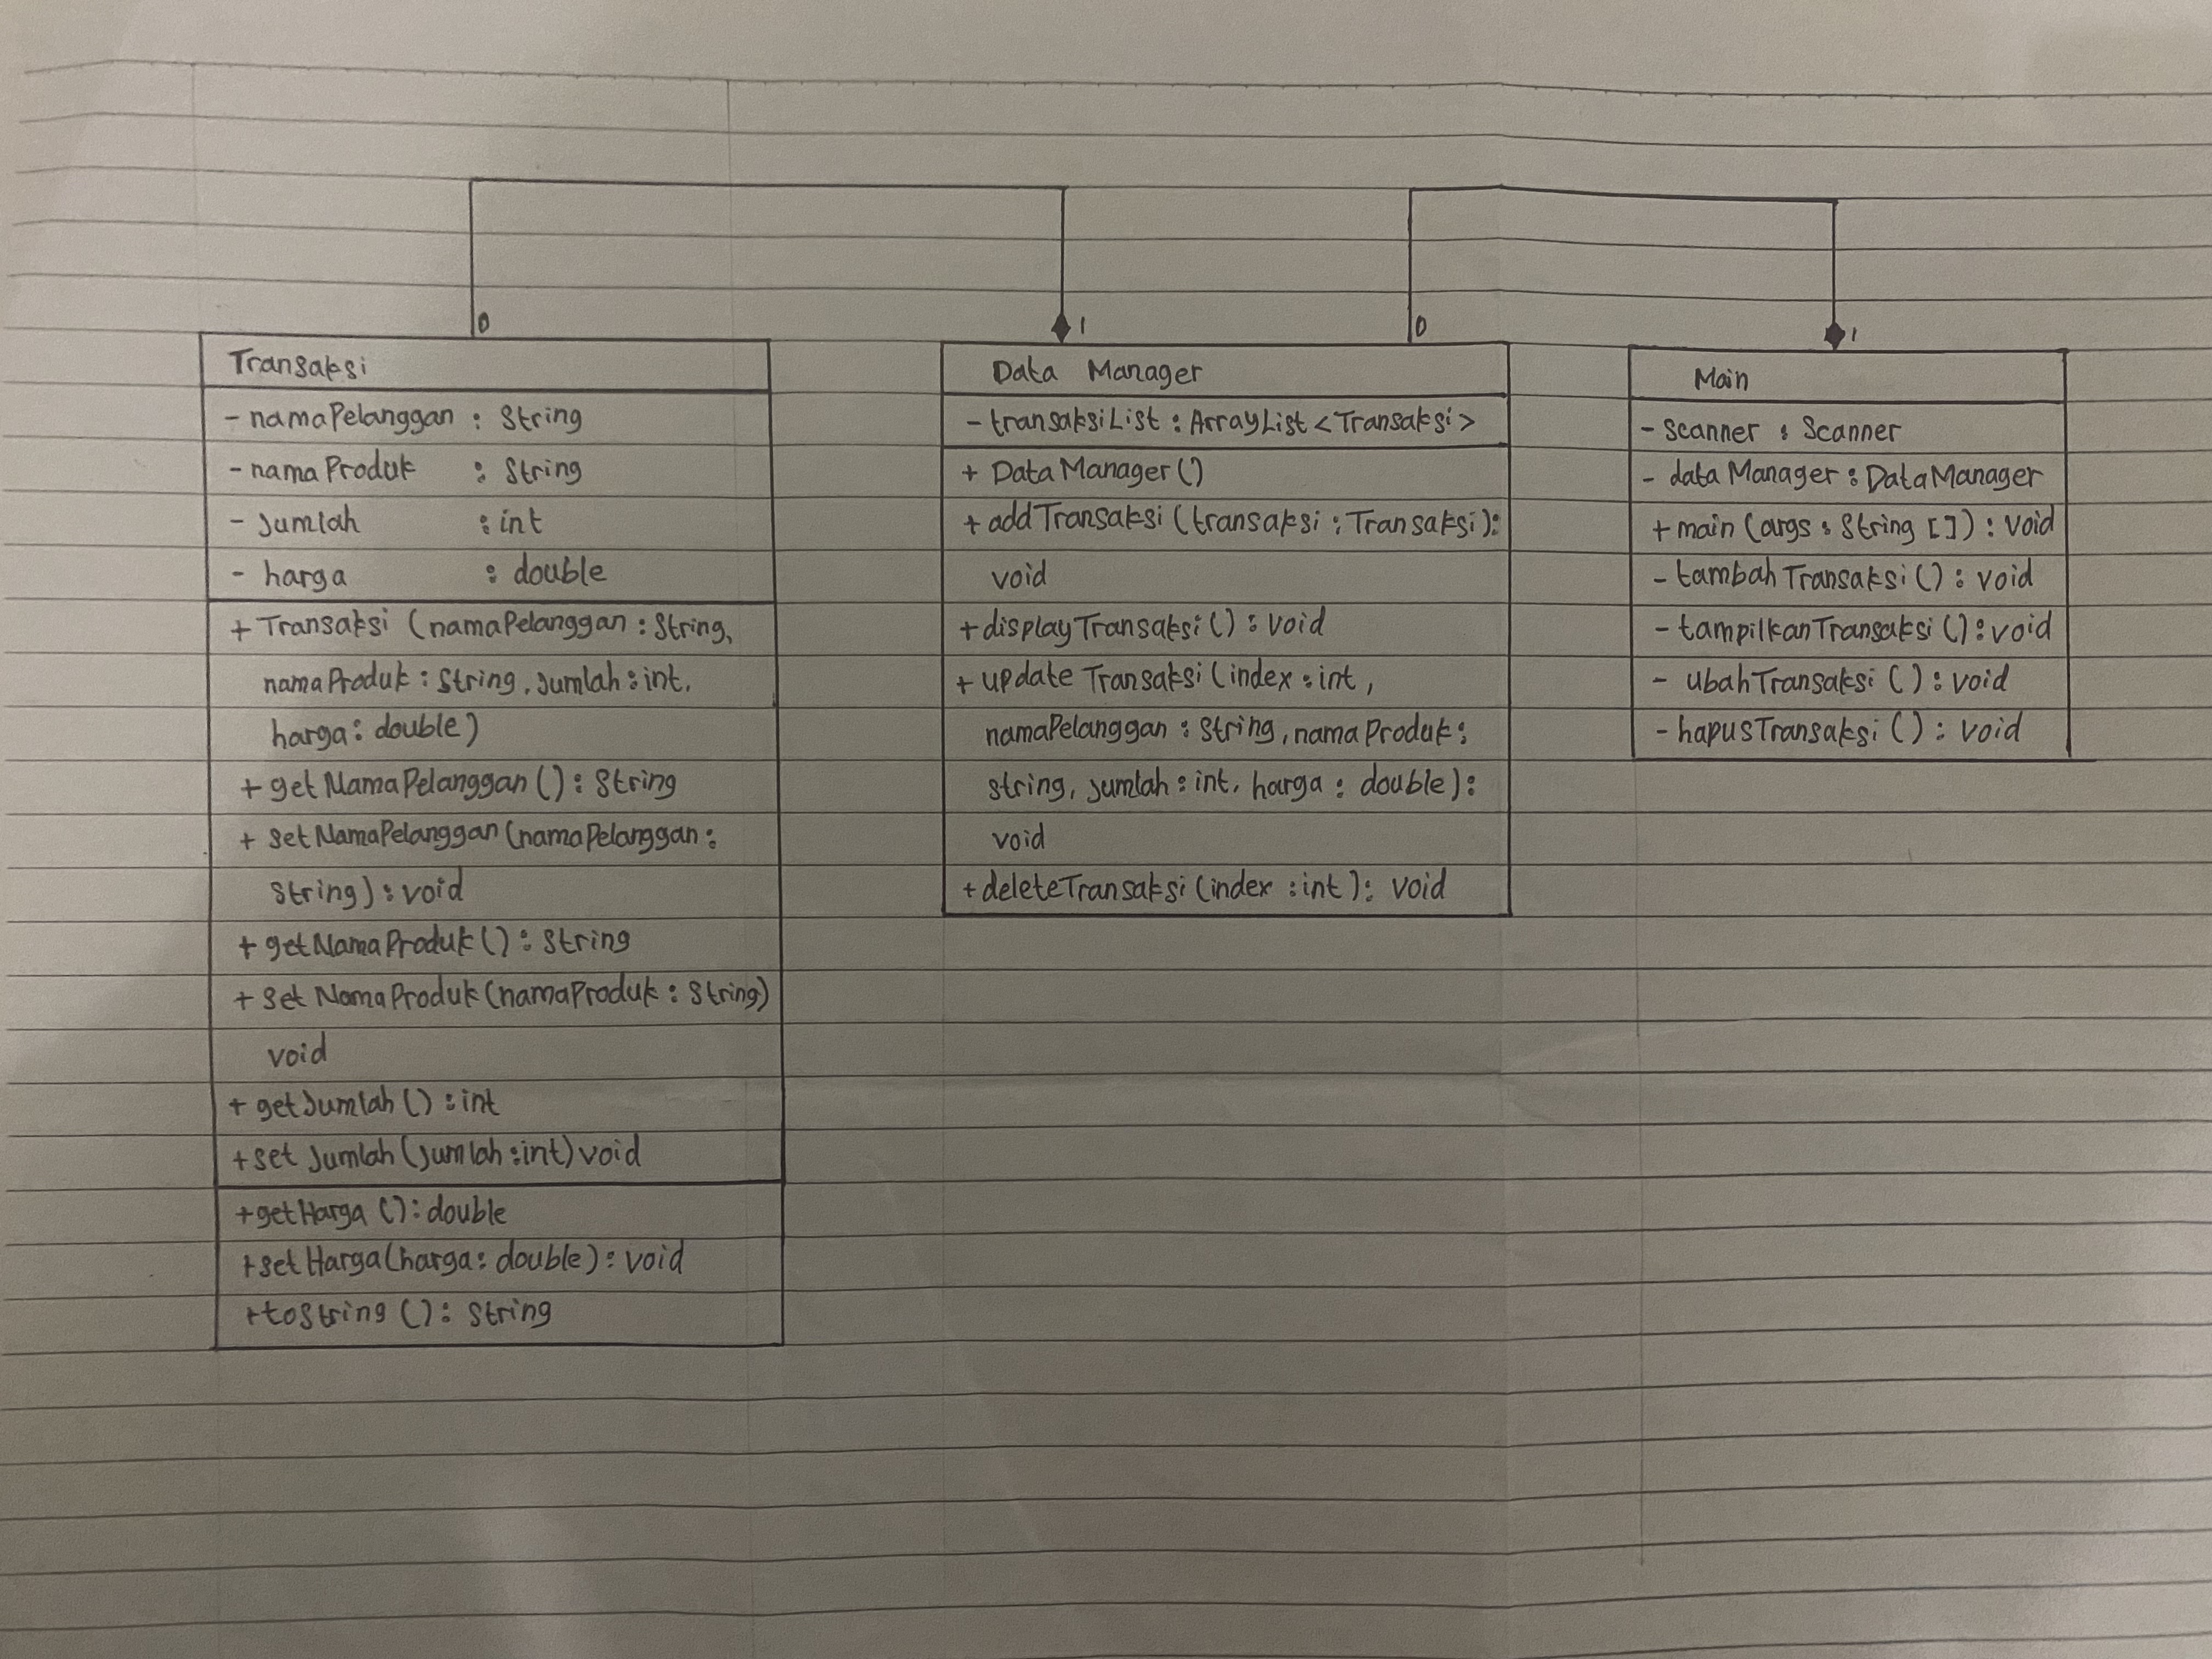 0
1
0
1
Transaksi
- namaPelanggan : String
- namaProduk : String
- Jumlah : int
- harga : double
+ Transaksi (namaPelanggan : String,
namaProduk : String, Jumlah : int,
harga : double)
+ getNamaPelanggan () : String
+ setNamaPelanggan (namaPelanggan :
String) : void
+ getNamaProduk () : String
+ set NamaProduk (namaProduk : String)
void
+ getJumlah () : int
+ set Jumlah (Jumlah : int) void
+ getHarga () : double
+ setHarga (harga : double) : void
+ toString () : String
Data Manager
- transaksiList : ArrayList <Transaksi>
+ DataManager ()
+ addTransaksi (transaksi : Transaksi) :
void
+ displayTransaksi () : void
+ update Transaksi (index : int,
namaPelanggan : String, namaProduk :
string, Jumlah : int, harga : double) :
void
+ deleteTransaksi (index : int) : void
Main
- Scanner : Scanner
- dataManager : DataManager
+ main (args : String []) : void
- tambahTransaksi () : void
- tampilkanTransaksi () : void
- ubahTransaksi () : void
- hapusTransaksi () : void